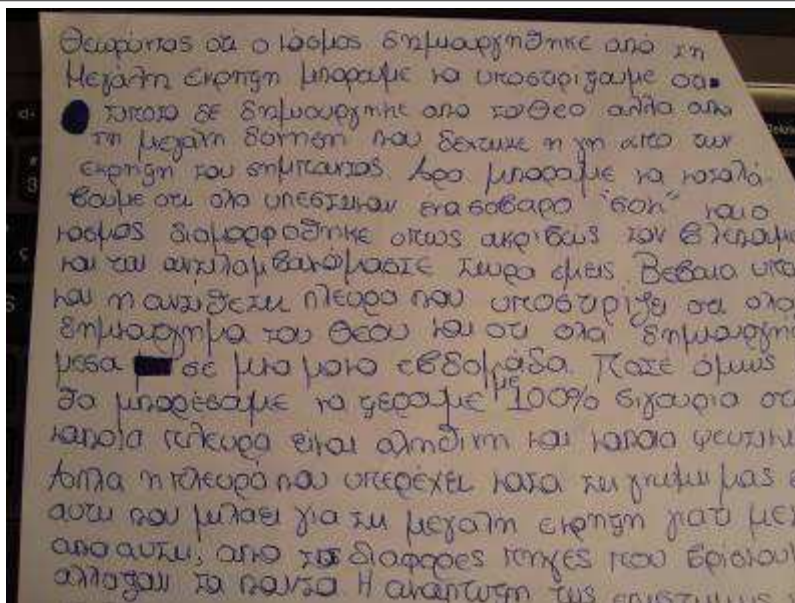 Θεωρόντας οτι ο κόσμος δημιουργήθηκε από τη
Μεγάλη έκρηξη μπορουμε να υποστιριξουμε οτι
τιποτα δε δημιουργητκε απο τον Θεο αλλα απο
τη μεγάλη δονηση που δεχτικε η γη απο την
εκρηξη του σημπαντος. Αρα μπορουμε να καταλά-
βουμε οτι ολα υπεστικαν ενα σοβαρο "σοκ" και ο
κοσμος διαμορφοθηκε οπως ακριβώς τον βλεπουμε
και τον αντιλαμβανόμαστε τωρα εμεις. Βεβαια υπα
και η αντιθετη πλευρα που υποστιριζει οτι ολα
δημιουργημα του Θεου και οτι ολα δημιουργη
μεσα σε μια μονο εβδομάδα. Ποτέ όμως
θα μπορέσουμε να ξερουμε με 100% σιγουρια οτι
καποια πλευρα ειναι αληθινη και καποια ψευτικη
Απλα η πλευρά που υπερέχει κατα τη γνωμη μας ε
αυτη που μιλαει για τη μεγαλη εκρηξη γιατι με
απο αυτη, απο τις διαφορες πηγες που βρισκου
αλλαξαν τα παντα Η αναπτυξη της επιστημης